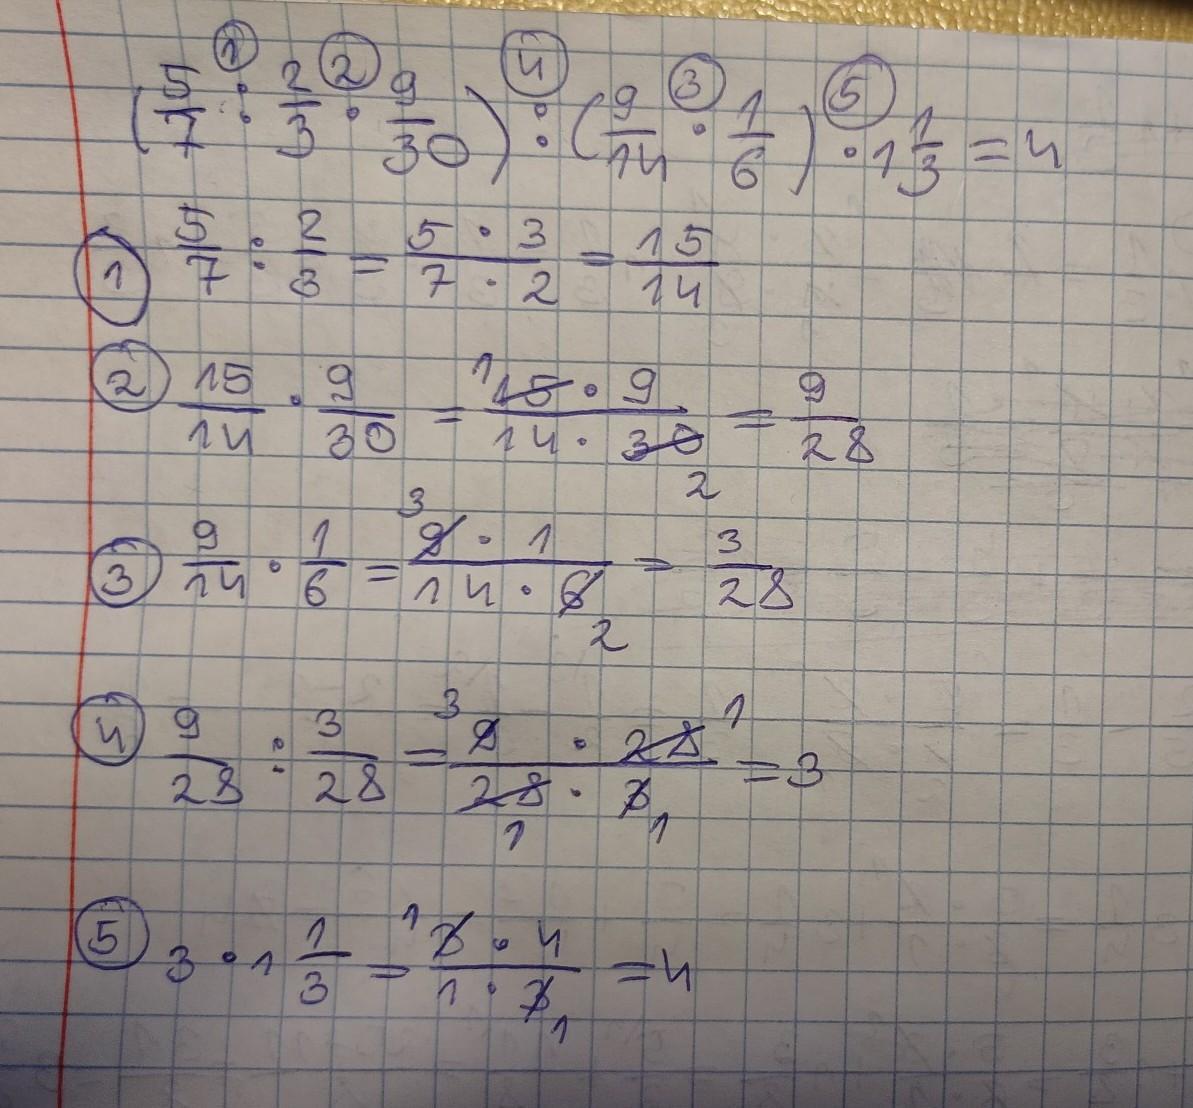 (5/7 : 2/3 · 9/30) : (9/14 · 1/6) · 1 1/3 = 4
① ② ④ ③ ⑤
① 5/7 : 2/3 = 5 · 3 / 7 · 2 = 15/14
② 15/14 · 9/30 = 1 15 · 9 / 14 · 30 2 = 9/28
③ 9/14 · 1/6 = 3 9 · 1 / 14 · 6 2 = 3/28
④ 9/28 : 3/28 = 3 9 · 28 1 / 28 1 · 3 1 = 3
⑤ 3 · 1 1/3 = 1 3 · 4 / 1 · 3 1 = 4